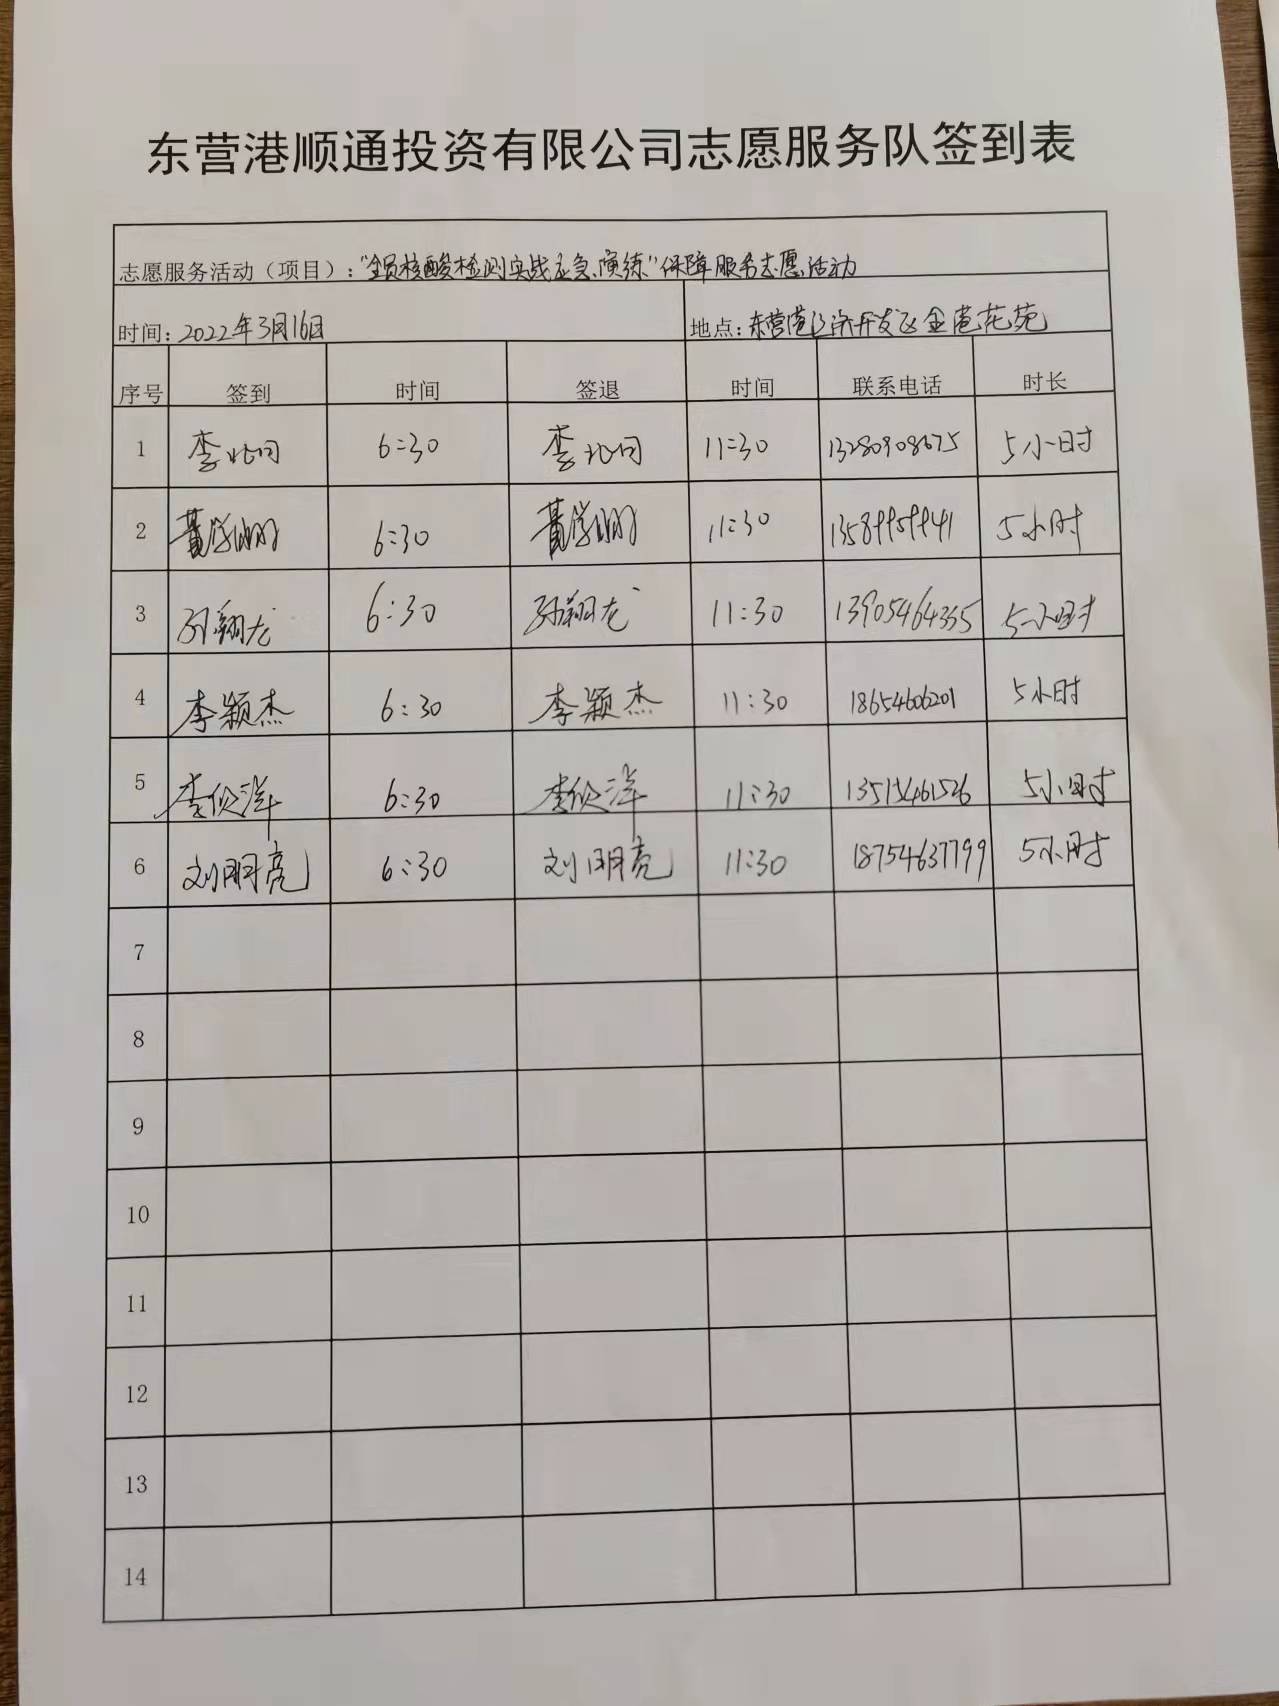 东营港顺通投资有限公司志愿服务队签到表
志愿服务活动（项目）："全员核酸检测实战应急演练"保障服务志愿活动
时间：2022年3月16日 地点：东营港经济开发区金港花苑
序号 签到 时间 签退 时间 联系电话 时长
1 李 6:30 李 11:30 13280908675 5小时
2 董学 6:30 董学 11:30 5小时
3 孙翔龙 6:30 孙翔龙 11:30 13905464355 5小时
4 李颖杰 6:30 李颖杰 11:30 18654606201 5小时
5 李俊洋 6:30 李俊洋 11:30 13515461526 5小时
6 刘明亮 6:30 刘明亮 11:30 18754637799 5小时
7
8
9
10
11
12
13
14